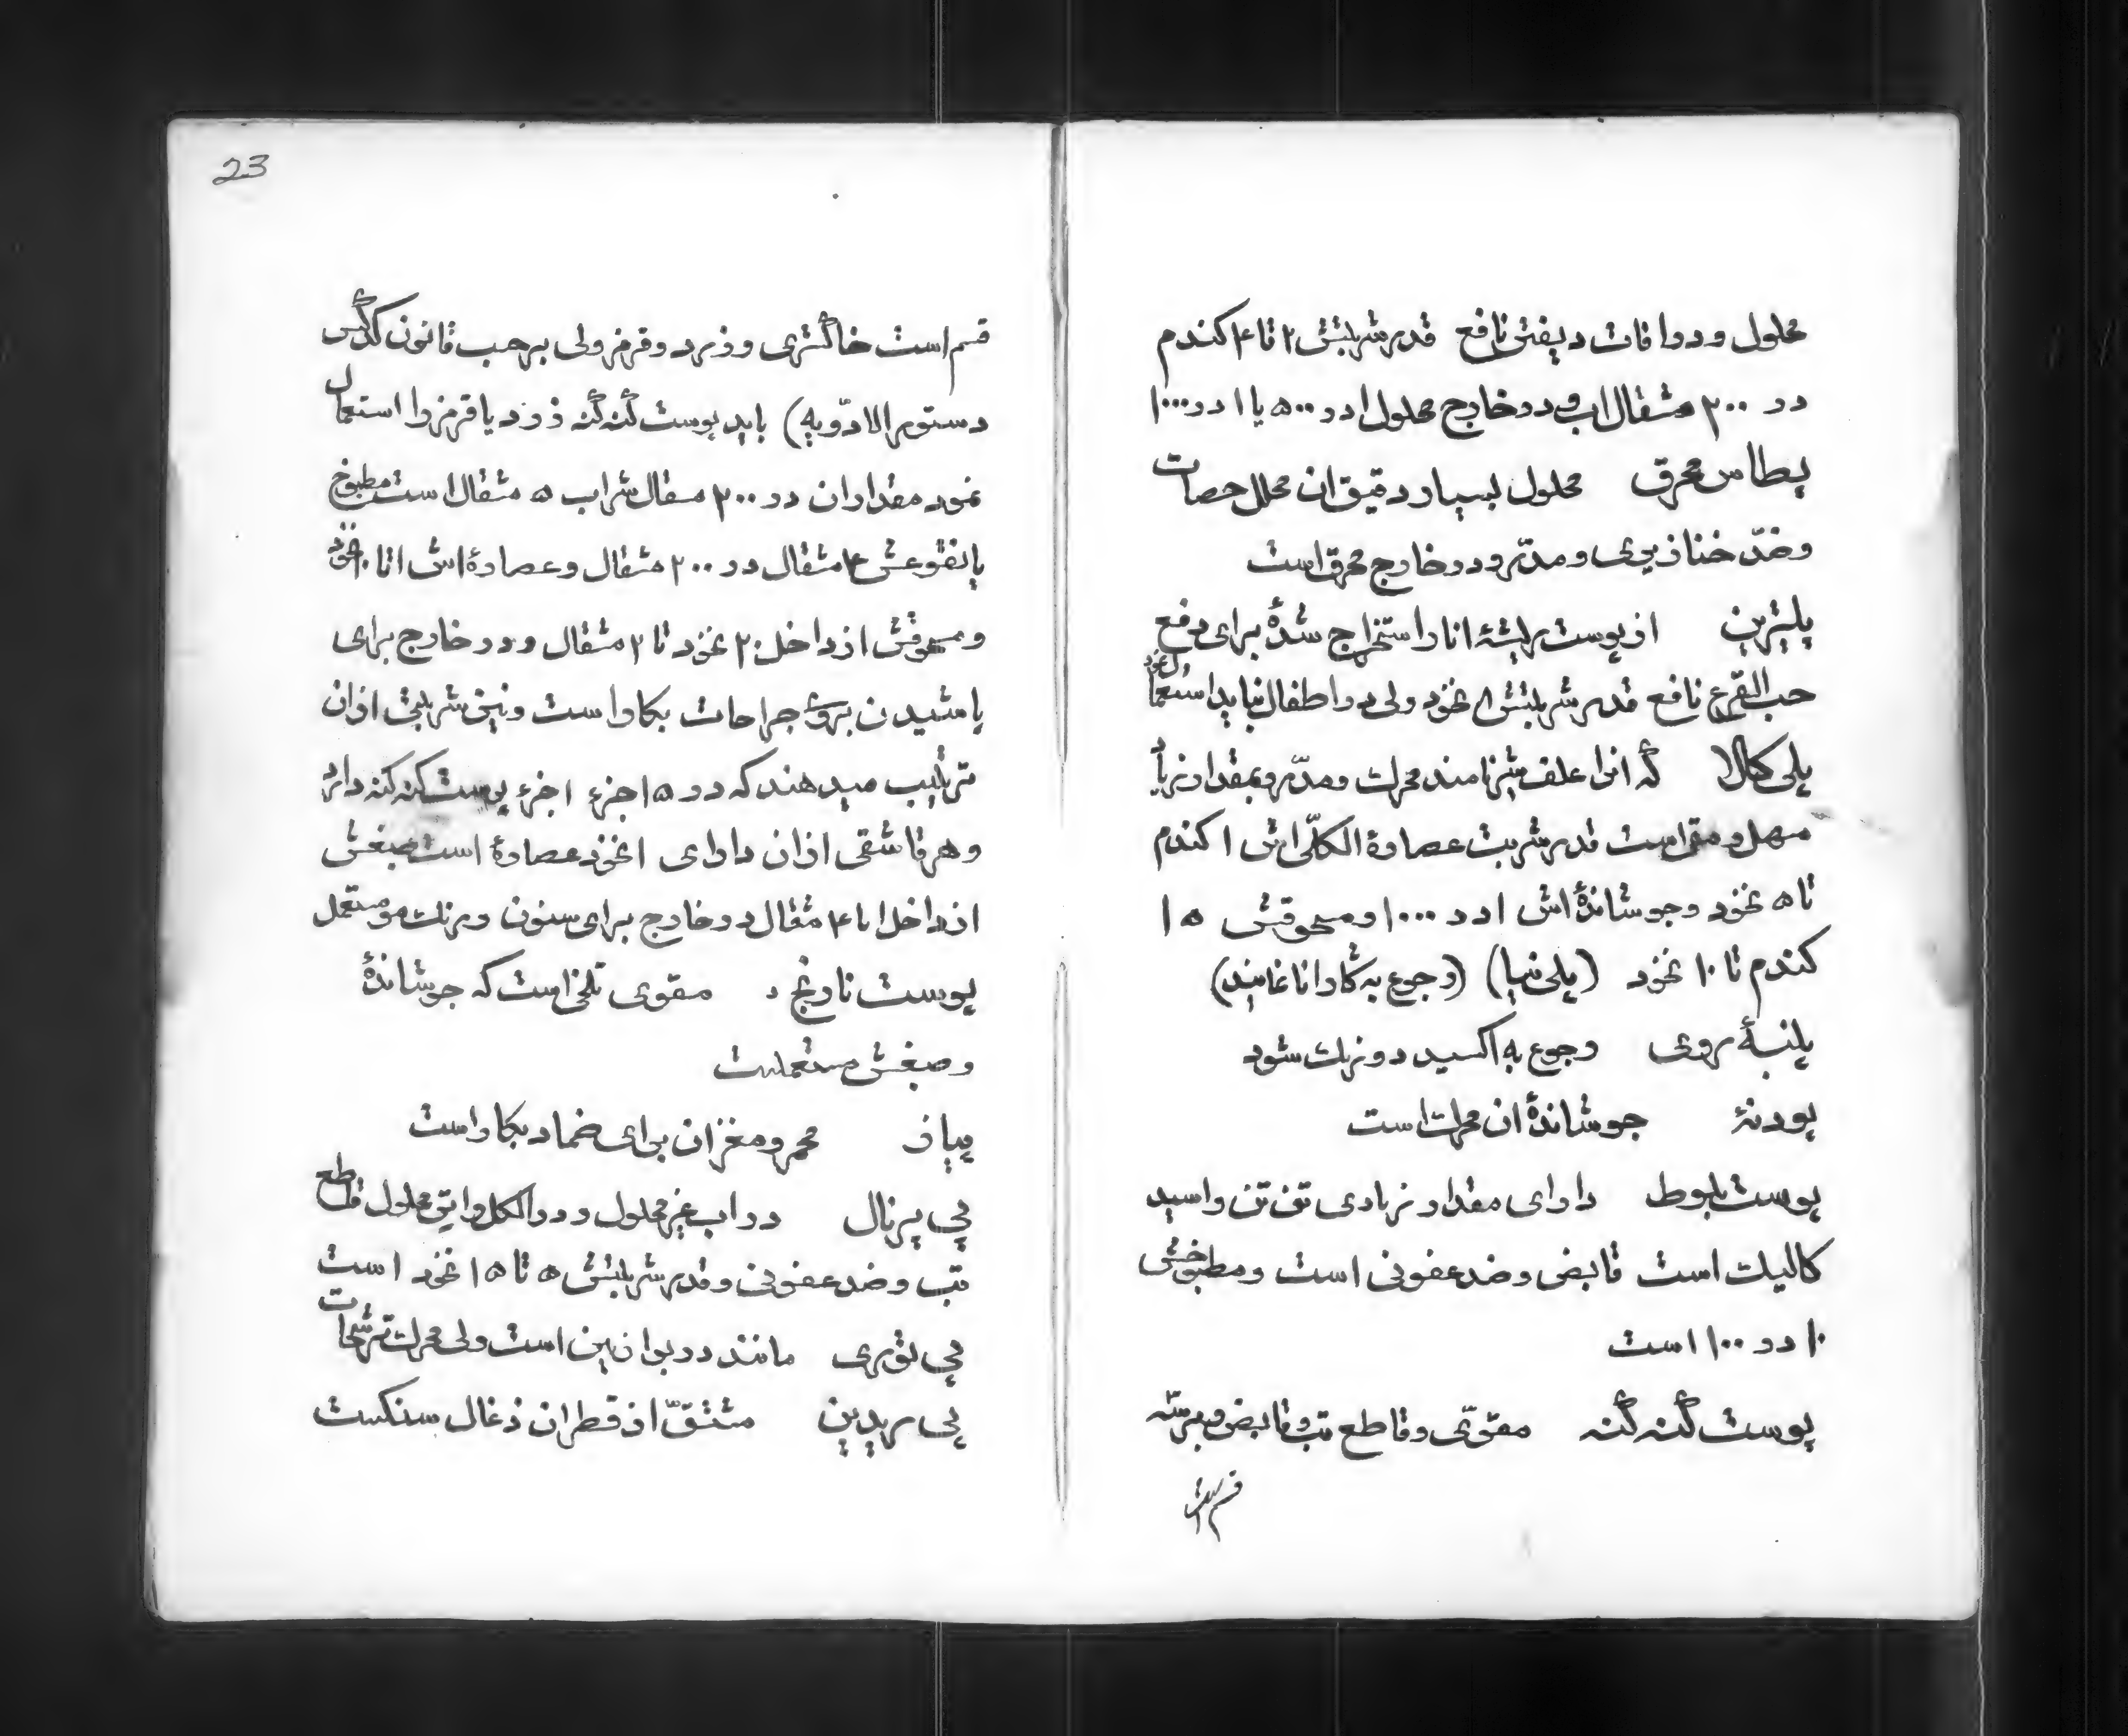 محلول و در افات دیفتری نافع قدر شربتش ۲ تا ۴ کندم
در ۲۰۰ مثقال اب و در خارج محلول ۱ در ۵۰۰ یا ۱ در ۱۰۰۰
پطاس محرق محلول بسیار رقیق ان محلل حصات
و ضدّ خنازیری و مدّر و در خارج محرق است
پلترین از پوست ریشهٔ انار استخراج شدهٔ برای دفع
حب القرع نافع قدر شربتش ۸ نخود ولی در اطفال نباید استعمال نمود
پلی کالا که انرا علف شیر نامند محرک و مدّر و بمقدار زیاد
مسهل و مقی است قدر شربت عصارهٔ الکلّی اش ۱ کندم
تا ۵ نخود و جوشاندهٔ اش ۱ در ۱۰۰۰ و مسحوقش ۱۵
کندم تا ۱۰ نخود (پلی نیا) (رجوع به گارانا نمایند)
پنبهٔ روی رجوع به اکسید دو زنک شود
پودنهٔ جوشاندهٔ ان محرک است
پوست بلوط دارای مقدار زیادی تن تن و اسید
کالیک است قابض و ضد عفونی است و مطبوخش
۱۰ در ۱۰۰ است
پوست گنه گنه مقوّی و قاطع تب و قابض و بر سه
قسم است
23
قسم است خاگستری و زرد و قرمز ولی برحسب قانون کدکس
دستور الادّویه) باید پوست گنه گنه زرد یا قرمز را استعمال
نمود مقدار ان در ۲۰۰ مثقال شراب ۵ مثقال است مطبوخ
یا نقوعش ۴ مثقال در ۲۰۰ مثقال و عصارهٔ اش ۱ تا ۱۰ نخود
و مسحوقش از داخل ۲۰ نخود تا ۲ مثقال و در خارج برای
پاشیدن بروی جراحات بکار است و نیز شربتی از ان
ترتیب میدهند که در ۱۵ جزء ۱ جزء پوست کنه کنه دارد
و هر قاشقی از ان دارای ۱ نخود عصارهٔ است صبغش
از داخل ۱ تا ۴ مثقال در خارج برای سنون و رنک مو مستعمل
پوست نارنج مقوی تلخی است که جوشاندهٔ
و صبغش مستعملست
پیاز محمر و مغز ان برای ضماد بکار است
پی پرنال در اب غیر محلول و در الکل و اتیر محلول قاطع
تب و ضد عفونی و قدر شربتش ۵ تا ۱۵ نخود است
پی توری مانند دوبوازین است ولی محرک ترشحات
پی ریدین مشتقّ از قطران ذغال سنکست